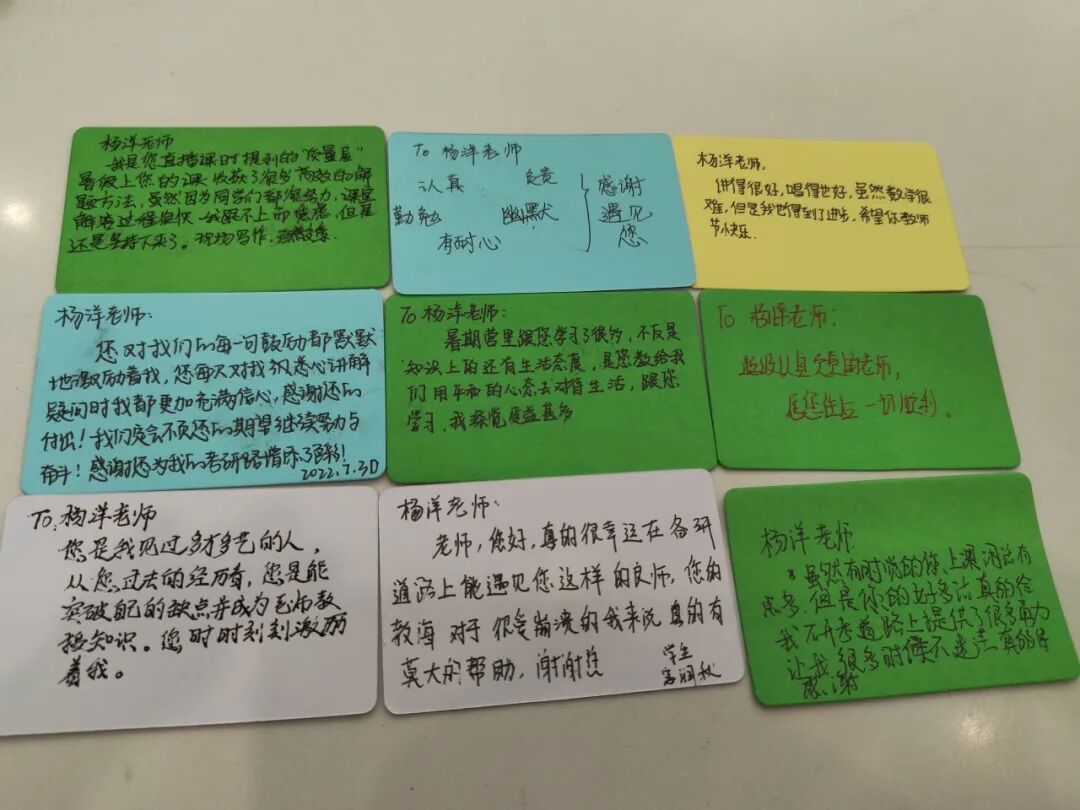 杨洋老师
我是您直播课时提到的“质量差”
暑假上您的课 收获了很多高效的解
题方法，虽然因为同学们都很努力，课堂
解答过程很快 我跟不上而焦虑，但是
还是坚持下来了。现场写作，
To 杨洋老师
认真 负责
勤勉 幽默
有耐心
感谢
遇见
您
杨洋老师，
讲得很好，唱得也好，虽然数学很
难，但是我也得到了进步，希望你教师
节快乐.
杨洋老师：
您对我们的每一句鼓励都默默
地激励着我，您每次对我们悉心讲解
疑问时我都更加充满信心，感谢您的
付出！我们定会不负您的期望继续努力与
奋斗！感谢您为我的考研路增添了色彩！
2022.7.30
To 杨洋老师：
暑期营里跟您学习了很多，不仅是
知识上的还有生活态度，是您教给我
们用平和的心态去对待生活，跟您
学习，我感觉受益甚多
To 杨洋老师：
超级认真负责的老师，
愿您往后一切胜利.
To 杨洋老师
您是我见过多才多艺的人，
从您过去的经历看，您是能
突破自己的缺点并成为老师教
授知识。您时时刻刻激励
着我。
杨洋老师：
老师，您好，真的很幸运在备研
道路上能遇见您这样的良师，您的
教诲 对于 很多崩溃的我来说 真的有
莫大的帮助，谢谢您
学生
润秋
杨洋老师
虽然有时说的你上课 总有
思考，但是你的好多话真的给
我 考道路上提供了很多助力
让我很多时候不迷茫 真的
感谢